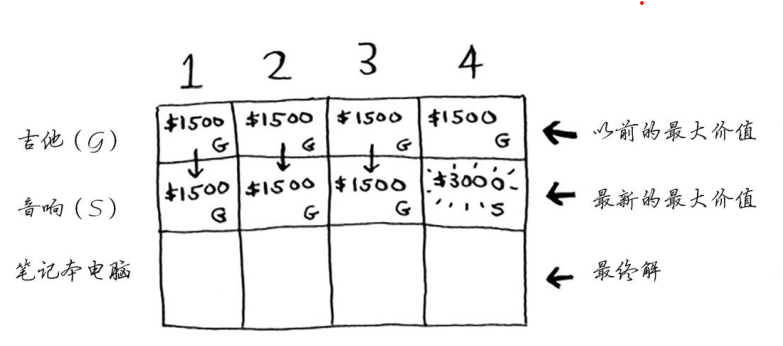 1 2 3 4
吉他(G) $1500 G $1500 G $1500 G $1500 G 以前的最大价值
音响(S) $1500 G $1500 G $1500 G $3000 S 最新的最大价值
笔记本电脑 最终解